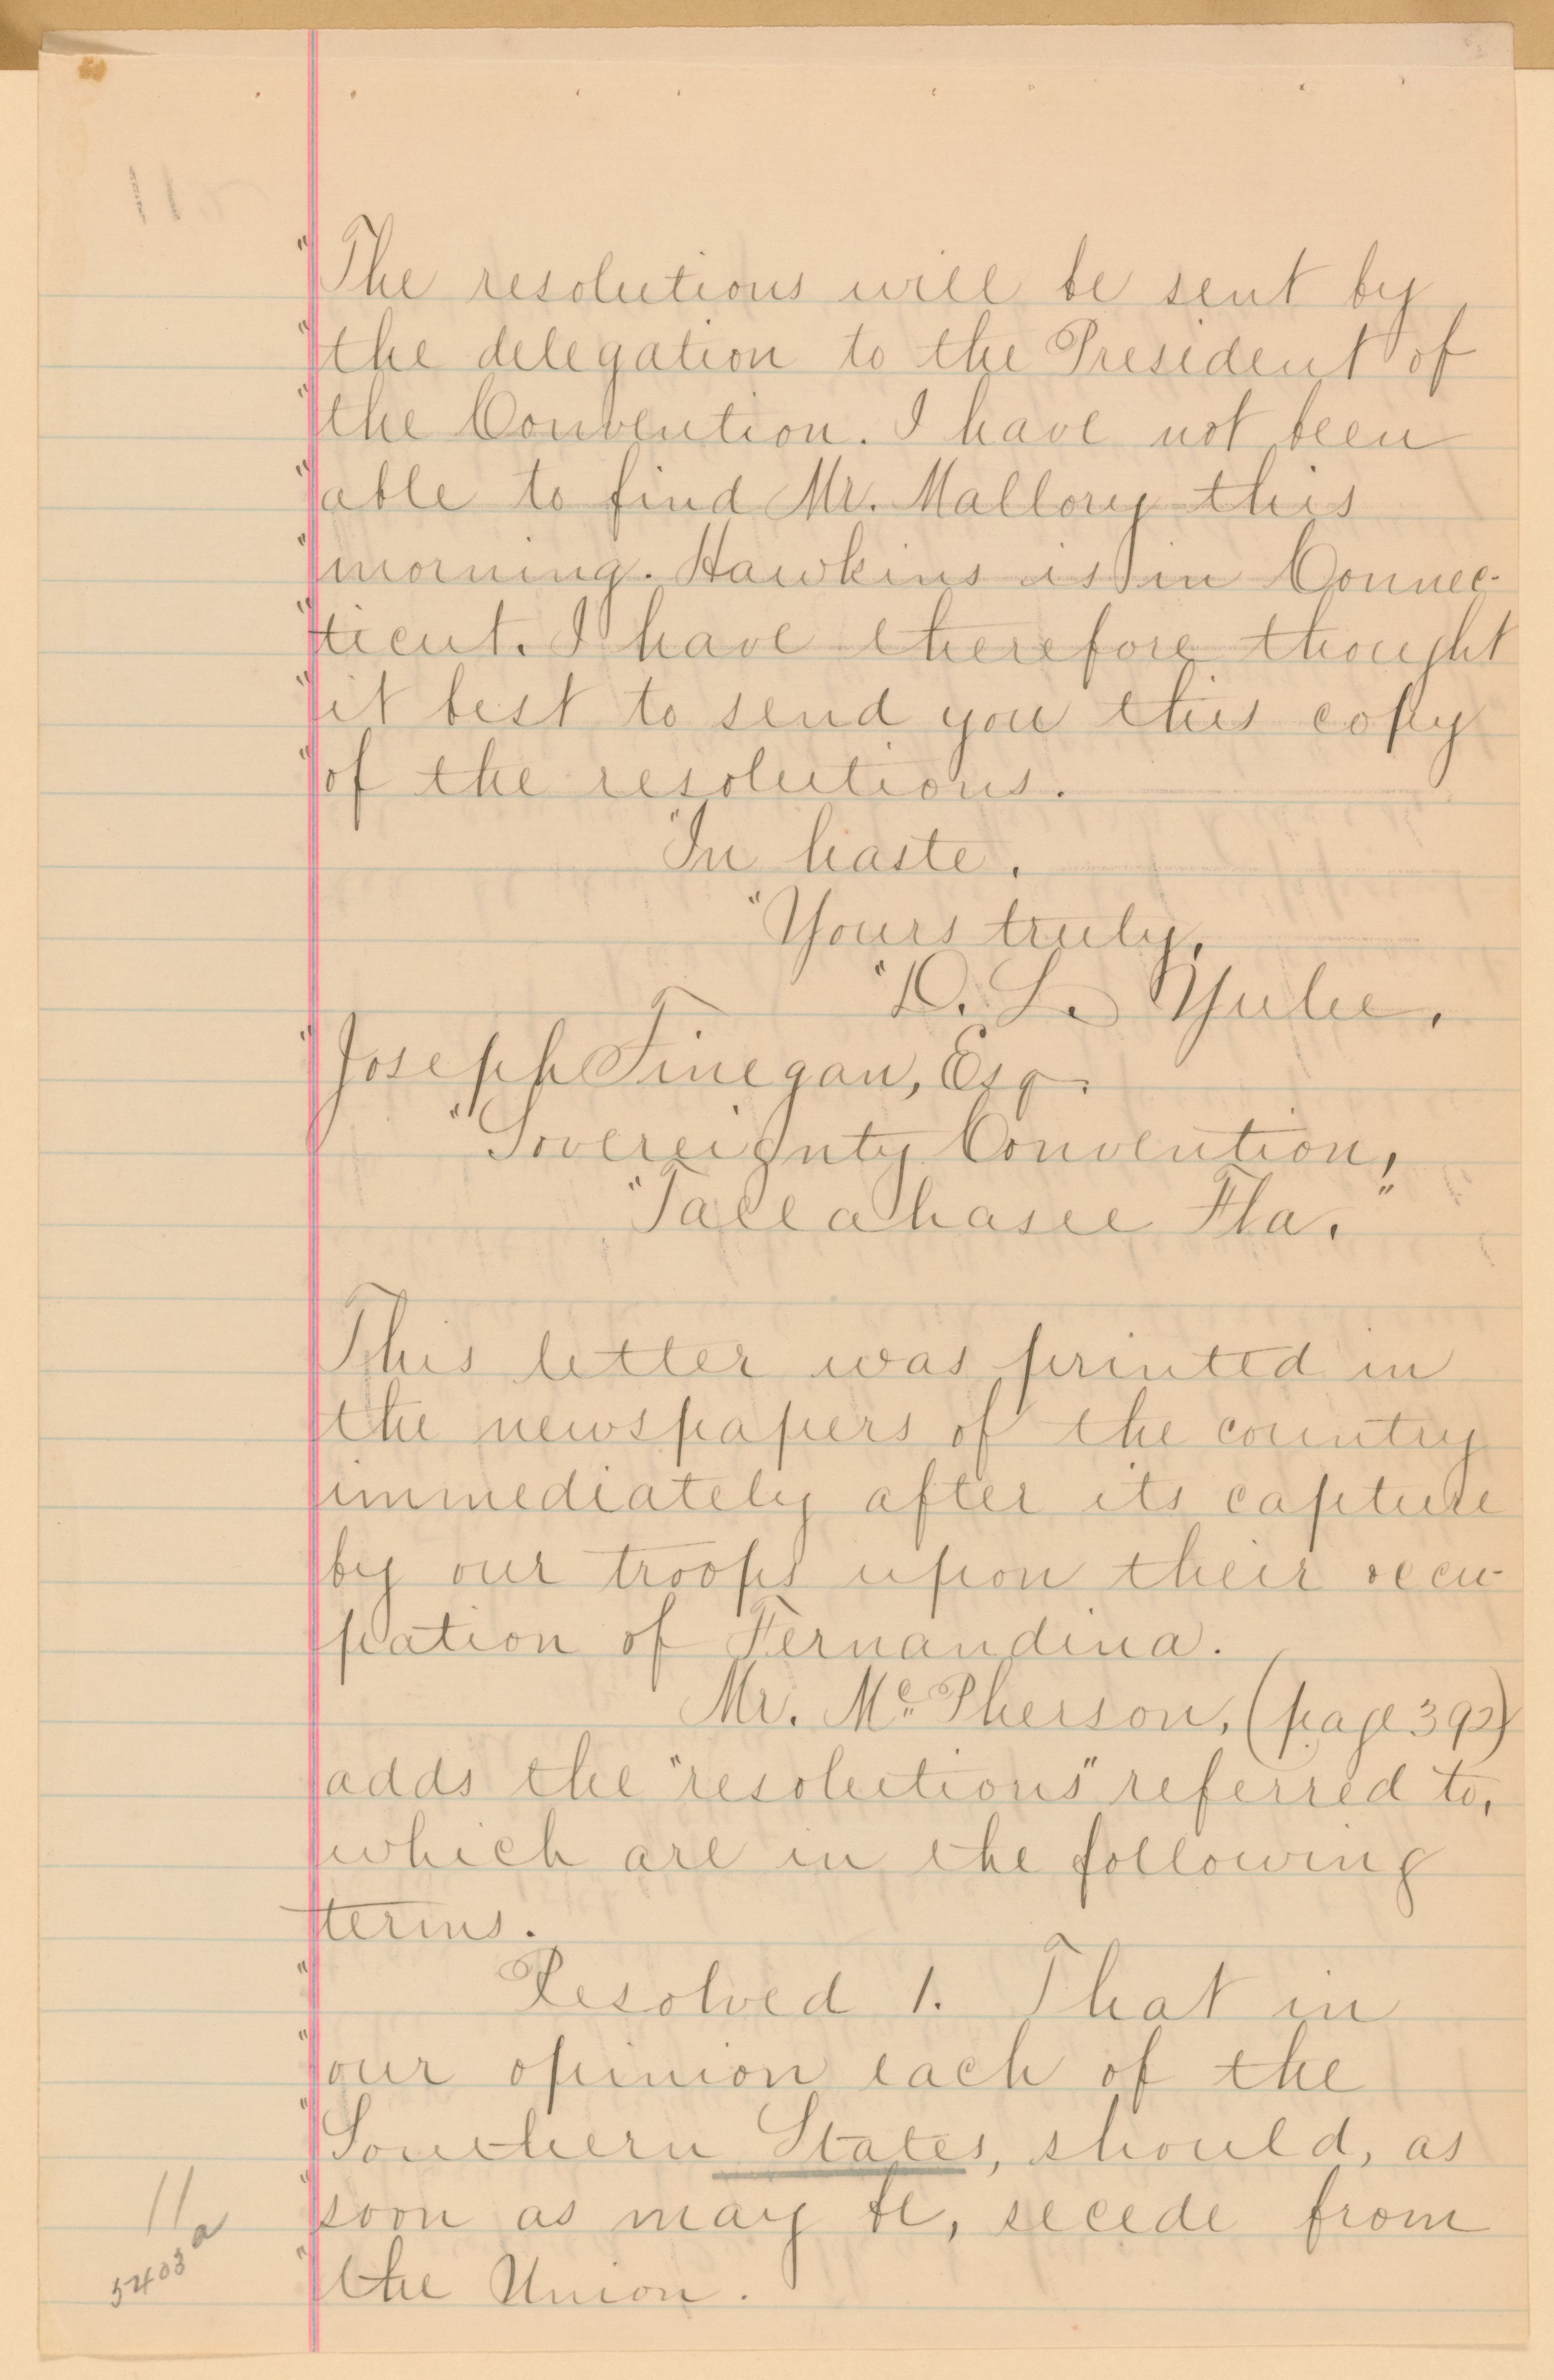 "The resolutions will be sent by
"the delegation to the President of
"the Convention. I have not been
"able to find Mr. Mallory this
"morning. Hawkins is in Connec-
"ticut. I have therefore thought
"it best to send you this copy
"of the resolutions.
"In haste.
"Yours truly,
"D. L. Yulee,
"Joseph Finegan, Esq.
"Sovereignty Convention,
"Tallahasee Fla."
This letter was printed in
the newspapers of the country
immediately after its capture
by our troops upon their occu-
pation of Fernandina.
Mr. McPherson, (page 392)
adds the "resolutions" referred to,
which are in the following
terms.
" Resolved 1. That in
"our opinion each of the
"Southern States, should, as
"soon as may be, secede from
"the Union.
11a
5403